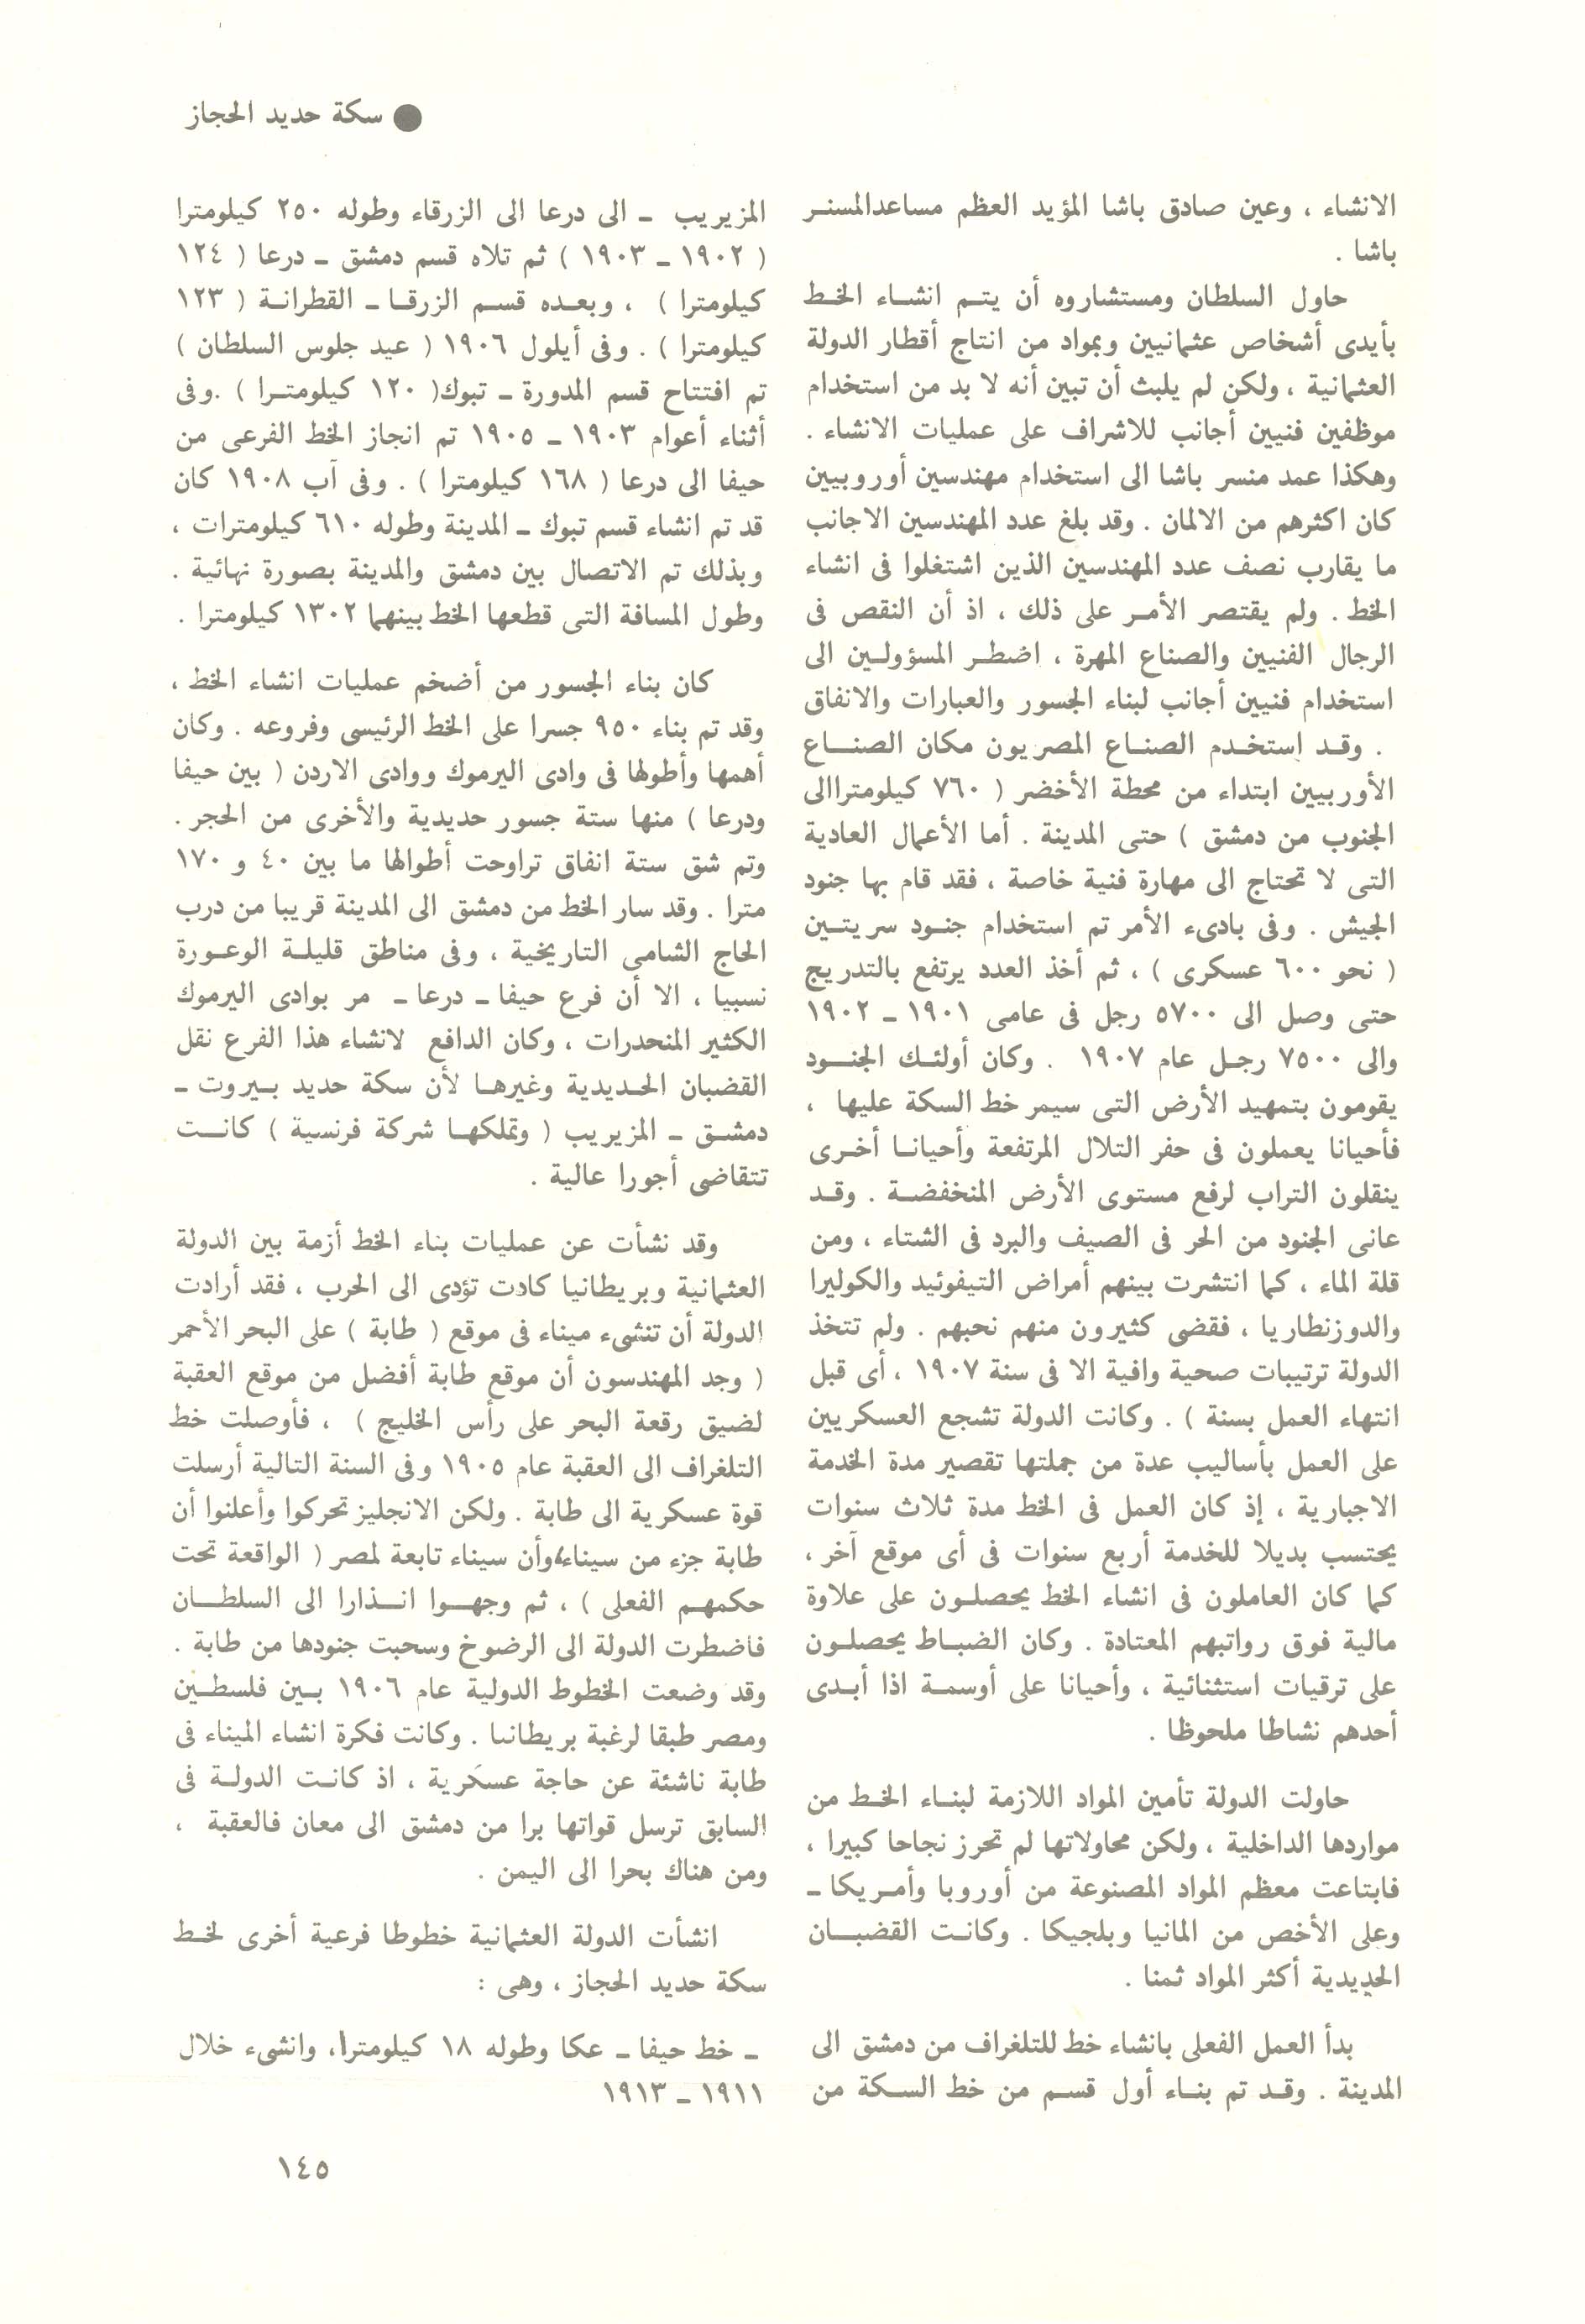 ● سكة حديد الحجاز
الانشاء ، وعين صادق باشا المؤيد العظم مساعدالمسنر
باشا .
حاول السلطان ومستشاروه أن يتم انشاء الخط
بأيدى أشخاص عثمانيين وبمواد من انتاج أقطار الدولة
العثمانية ، ولكن لم يلبث أن تبين أنه لا بد من استخدام
موظفين فنيين أجانب للاشراف على عمليات الانشاء .
وهكذا عمد منسر باشا الى استخدام مهندسين أوروبيين
كان اكثرهم من الالمان . وقد بلغ عدد المهندسين الاجانب
ما يقارب نصف عدد المهندسين الذين اشتغلوا فى انشاء
الخط . ولم يقتصر الأمر على ذلك ، اذ أن النقص فى
الرجال الفنيين والصناع المهرة ، اضطر المسؤولين الى
استخدام فنيين أجانب لبناء الجسور والعبارات والانفاق
. وقد استخدم الصناع المصريون مكان الصناع
الأوربيين ابتداء من محطة الأخضر ( ٧٦٠ كيلومتراالى
الجنوب من دمشق ) حتى المدينة . أما الأعمال العادية
التى لا تحتاج الى مهارة فنية خاصة ، فقد قام بها جنود
الجيش . وفى بادىء الأمر تم استخدام جنود سريتين
( نحو ٦٠٠ عسكرى ) ، ثم أخذ العدد يرتفع بالتدريج
حتى وصل الى ٥٧٠٠ رجل فى عامى ١٩٠١ - ١٩٠٢
والى ٧٥٠٠ رجل عام ١٩٠٧ . وكان أولئك الجنود
يقومون بتمهيد الأرض التى سيمر خط السكة عليها ،
فأحيانا يعملون فى حفر التلال المرتفعة وأحيانا أخرى
ينقلون التراب لرفع مستوى الأرض المنخفضة . وقد
عانى الجنود من الحر فى الصيف والبرد فى الشتاء ، ومن
قلة الماء ، كما انتشرت بينهم أمراض التيفوئيد والكوليرا
والدوزنطاريا ، فقضى كثيرون منهم نحبهم . ولم تتخذ
الدولة ترتيبات صحية وافية الا فى سنة ١٩٠٧ ، أى قبل
انتهاء العمل بسنة ) . وكانت الدولة تشجع العسكريين
على العمل بأساليب عدة من جملتها تقصير مدة الخدمة
الاجبارية ، إذ كان العمل فى الخط مدة ثلاث سنوات
يحتسب بديلا للخدمة أربع سنوات فى أى موقع آخر ،
كما كان العاملون فى انشاء الخط يحصلون على علاوة
مالية فوق رواتبهم المعتادة . وكان الضباط يحصلون
على ترقيات استثنائية ، وأحيانا على أوسمة اذا أبدى
أحدهم نشاطا ملحوظا .
حاولت الدولة تأمين المواد اللازمة لبناء الخط من
مواردها الداخلية ، ولكن محاولاتها لم تحرز نجاحا كبيرا ،
فابتاعت معظم المواد المصنوعة من أوروبا وأمريكا -
وعلى الأخص من المانيا وبلجيكا . وكانت القضبان
الحديدية أكثر المواد ثمنا .
بدأ العمل الفعلى بانشاء خط للتلغراف من دمشق الى
المدينة . وقد تم بناء أول قسم من خط السكة من
المزيريب - الى درعا الى الزرقاء وطوله ٢٥٠ كيلومترا
( ١٩٠٢ - ١٩٠٣ ) ثم تلاه قسم دمشق - درعا ( ١٢٤
كيلومترا ) ، وبعده قسم الزرقا - القطرانة ( ١٢٣
كيلومترا ) . وفى أيلول ١٩٠٦ ( عيد جلوس السلطان )
تم افتتاح قسم المدورة - تبوك( ١٢٠ كيلومترا ) .وفى
أثناء أعوام ١٩٠٣ - ١٩٠٥ تم انجاز الخط الفرعى من
حيفا الى درعا ( ١٦٨ كيلومترا ) . وفى آب ١٩٠٨ كان
قد تم انشاء قسم تبوك - المدينة وطوله ٦١٠ كيلومترات ،
وبذلك تم الاتصال بين دمشق والمدينة بصورة نهائية .
وطول المسافة التى قطعها الخط بينهما ١٣٠٢ كيلومترا .
كان بناء الجسور من أضخم عمليات انشاء الخط ،
وقد تم بناء ٩٥٠ جسرا على الخط الرئيسى وفروعه . وكان
أهمها وأطولها فى وادى اليرموك ووادى الاردن ( بين حيفا
ودرعا ) منها ستة جسور حديدية والأخرى من الحجر .
وتم شق ستة انفاق تراوحت أطوالها ما بين ٤٠ و ١٧٠
مترا . وقد سار الخط من دمشق الى المدينة قريبا من درب
الحاج الشامى التاريخية ، وفى مناطق قليلة الوعورة
نسبيا ، الا أن فرع حيفا - درعا - مر بوادى اليرموك
الكثير المنحدرات ، وكان الدافع لانشاء هذا الفرع نقل
القضبان الحديدية وغيرها لأن سكة حديد بيروت -
دمشق - المزيريب ( وتملكها شركة فرنسية ) كانت
تتقاضى أجورا عالية .
وقد نشأت عن عمليات بناء الخط أزمة بين الدولة
العثمانية وبريطانيا كادت تؤدى الى الحرب ، فقد أرادت
الدولة أن تنشىء ميناء فى موقع ( طابة ) على البحر الأحمر
( وجد المهندسون أن موقع طابة أفضل من موقع العقبة
لضيق رقعة البحر على رأس الخليج ) ، فأوصلت خط
التلغراف الى العقبة عام ١٩٠٥ وفى السنة التالية أرسلت
قوة عسكرية الى طابة . ولكن الانجليز تحركوا وأعلنوا أن
طابة جزء من سيناء،وأن سيناء تابعة لمصر ( الواقعة تحت
حكمهم الفعلى ) ، ثم وجهوا انذارا الى السلطان
فاضطرت الدولة الى الرضوخ وسحبت جنودها من طابة .
وقد وضعت الخطوط الدولية عام ١٩٠٦ بين فلسطين
ومصر طبقا لرغبة بريطانيا . وكانت فكرة انشاء الميناء فى
طابة ناشئة عن حاجة عسكرية ، اذ كانت الدولة فى
السابق ترسل قواتها برا من دمشق الى معان فالعقبة ،
ومن هناك بحرا الى اليمن .
انشأت الدولة العثمانية خطوطا فرعية أخرى لخط
سكة حديد الحجاز ، وهى :
- خط حيفا - عكا وطوله ١٨ كيلومترا، وانشىء خلال
١٩١١ - ١٩١٣
١٤٥